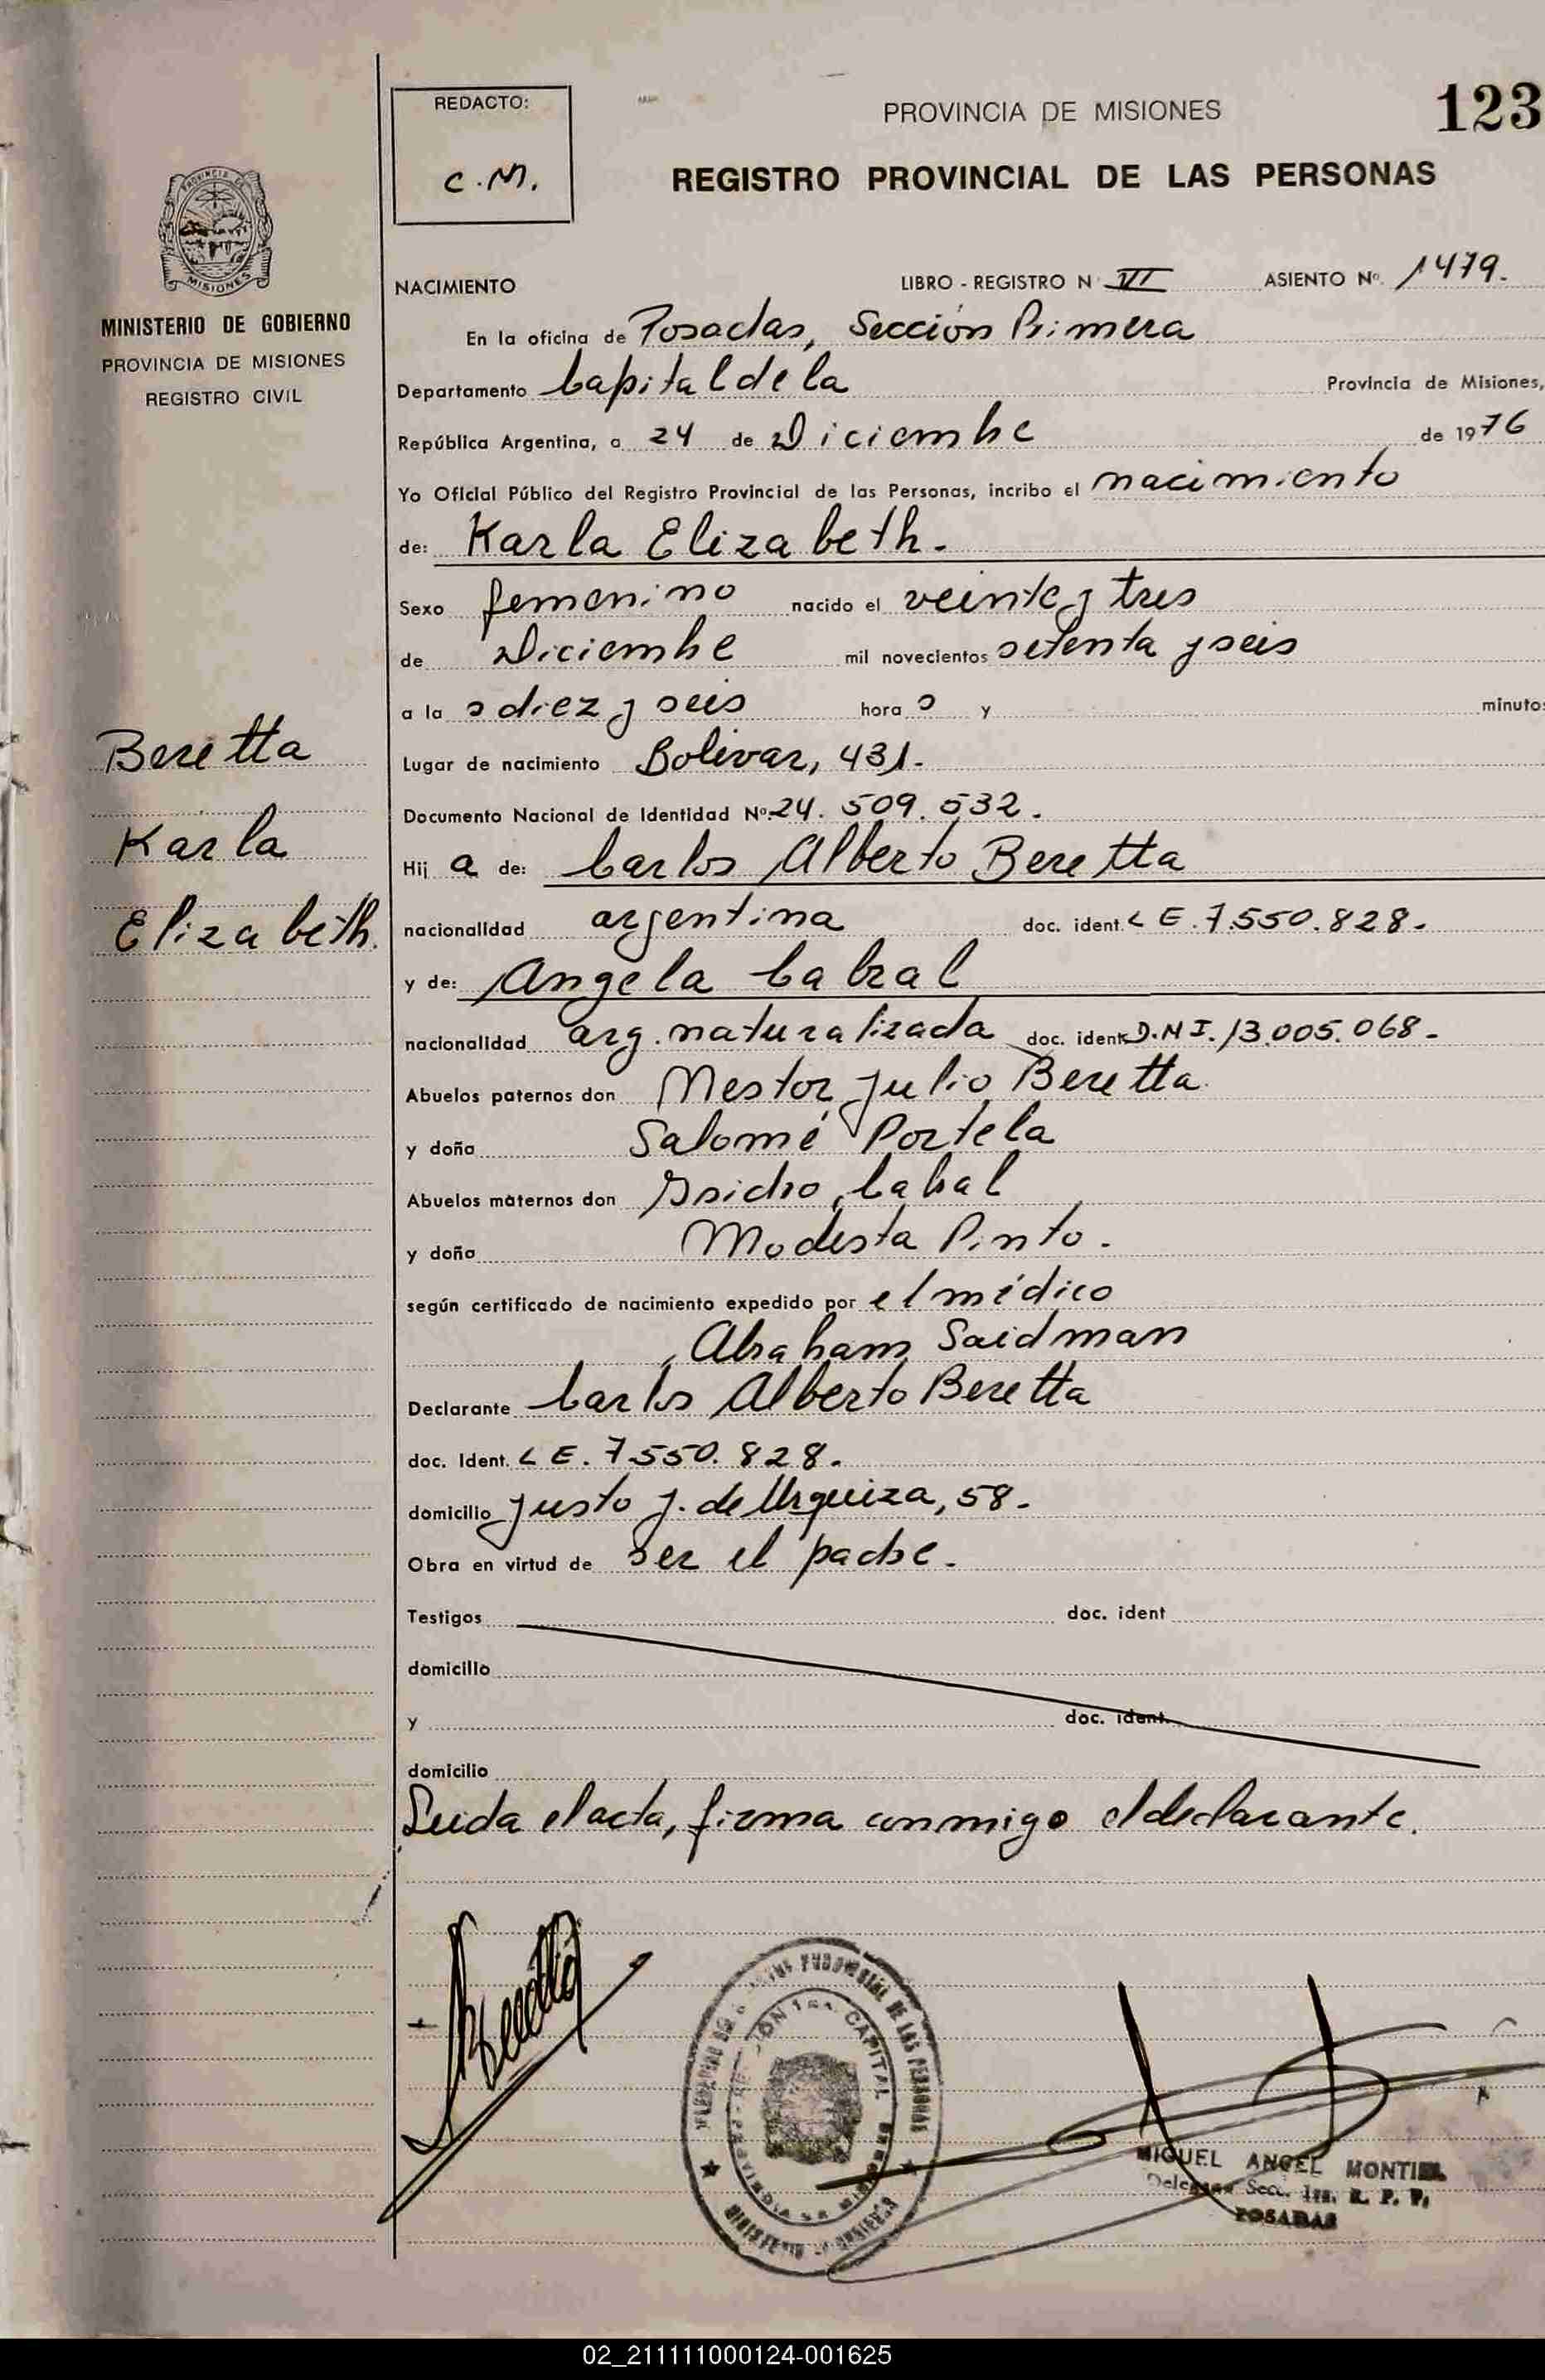 REDACTO:
C.M.
PROVINCIA DE MISIONES
123
REGISTRO PROVINCIAL DE LAS PERSONAS
PROVINCIA DE
MISIONES
MINISTERIO DE GOBIERNO
PROVINCIA DE MISIONES
REGISTRO CIVIL
NACIMIENTO LIBRO - REGISTRO N VI ASIENTO Nº 1479.
En la oficina de Posadas, Sección Primera
Departamento Capital de la Provincia de Misiones,
República Argentina, a 24 de Diciembre de 1976
Yo Oficial Público del Registro Provincial de las Personas, incribo el nacimiento
de: Karla Elizabeth.
Sexo femenino nacido el veinte y tres
de Diciembre mil novecientos setenta y seis
a la s diez y seis hora s y minuto
Lugar de nacimiento Bolívar, 431.
Documento Nacional de Identidad Nº 24.509.532.
Hij a de: Carlos Alberto Beretta
nacionalidad argentina doc. ident. L E. 7.550.828.
y de: Angela Cabral
nacionalidad arg. naturalizada doc. ident. D.N I. 13.005.068.
Abuelos paternos don Nestor Julio Beretta
y doña Salomé Portela
Abuelos maternos don Isidro Cabral
y doña Modesta Pinto.
según certificado de nacimiento expedido por el médico
Abraham Saidman
Declarante Carlos Alberto Beretta
doc. Ident. L E. 7.550.828.
domicilio Justo J. de Urquiza, 58.
Obra en virtud de ser el padre.
Testigos doc. ident
domicilio
y doc. ident.
domicilio
Leida el acta, firma conmigo el declarante.
Beretta
Karla
Elizabeth.
Beretta
PROVINCIAL DE LAS PERSONAS
CAPITAL
MIGUEL ANGEL MONTIEL
Delegado Secc. 1ra. R. P. P.
POSADAS
02_211111000124-001625